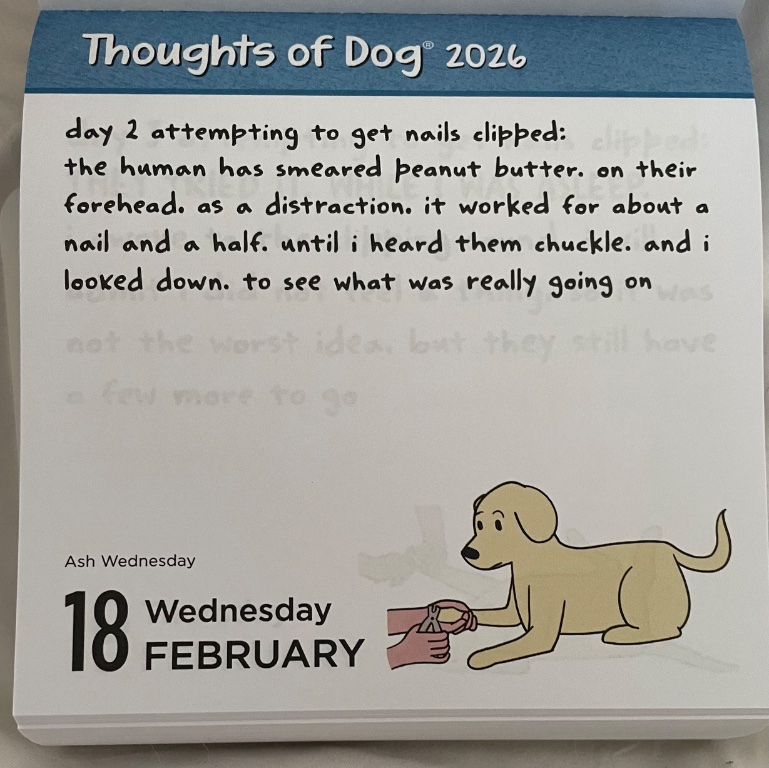 Thoughts of Dog® 2026
day 2 attempting to get nails clipped:
the human has smeared peanut butter. on their
forehead. as a distraction. it worked for about a
nail and a half. until i heard them chuckle. and i
looked down. to see what was really going on
not the worst idea. but they still have
a few more to go
Ash Wednesday
18 Wednesday
FEBRUARY